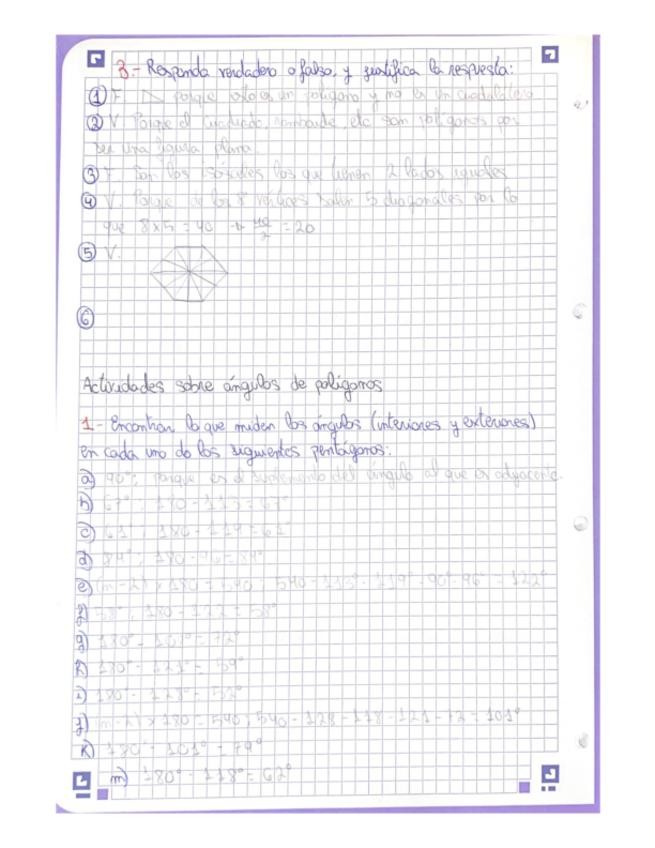 3.- Responda verdadero o falso, y justifica la respuesta:
① F. porque esto es un polígono y no es un cuadrilátero
② V. Porque el cuadrado, romboide, etc son polígonos por
ser una figura plana.
③ F. Son los isósceles los que tienen 2 lados iguales
④ V. Porque de los 8 vértices salen 5 diagonales por lo
que 8x5 = 40 → 40/2 = 20
⑤ V.
⑥
Actividades sobre ángulos de polígonos
1.- Encontrar lo que miden los ángulos (interiores y exteriores)
en cada uno de los siguientes pentágonos:
a) 90°; porque es el suplemento del ángulo al que es adyacente.
b) 67°; 180 - 113 = 67°
c) 61°; 180 - 119 = 61°
d) 84°; 180 - 96 = 84°
e) (n-2) x 180 = 540; 540 - 113° - 119° - 90° - 96° = 122°
f) 58°; 180 - 122 = 58°
g) 180° - 101° = 72°
h) 180° - 121° = 59°
i) 180° - 128° = 52°
j) (n-2) x 180 = 540; 540 - 128 - 118 - 121 - 72 = 101°
k) 180° - 101° = 79°
m) 180° - 118° = 62°